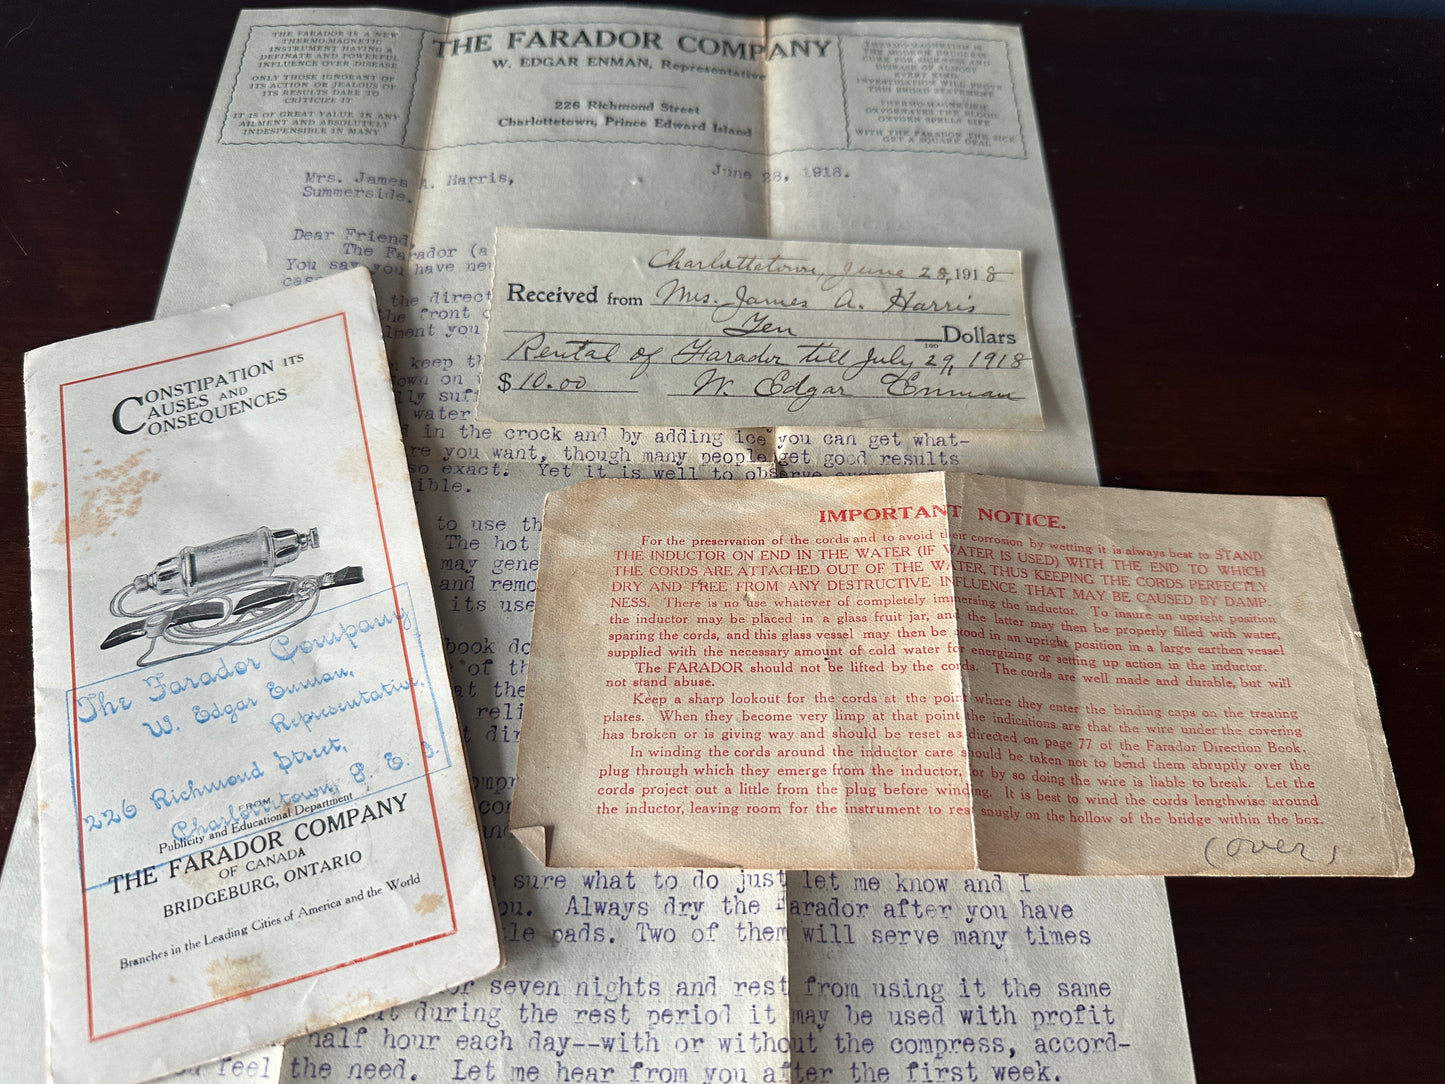 THE FARADOR IS A NEW
THERMO-MAGNETIC
INSTRUMENT HAVING A
DEFINATE AND POWERFUL
INFLUENCE OVER DISEASE
ONLY THOSE IGNORANT OF
ITS ACTION OR JEALOUS OF
ITS RESULTS DARE TO
CRITICIZE IT
IT IS OF GREAT VALUE IN ANY
AILMENT AND ABSOLUTELY
INDESPENSIBLE IN MANY
THE FARADOR COMPANY
W. EDGAR ENMAN, Representative
226 Richmond Street
Charlottetown, Prince Edward Island
THERMO-MAGNETISM IS
THE MODERN DRUGLESS
CURE FOR SICKNESS AND
DISEASE OF ALMOST
EVERY KIND.
INVESTIGATION WILL PROVE
THIS BROAD STATEMENT
THERMO-MAGNETISM
OXYGENATES THE BLOOD
OXYGEN SPELLS LIFE
WITH THE FARADOR THE SICK
GET A SQUARE DEAL
June 28, 1918.
Mrs. James A. Harris,
Summerside.
Dear Friend,
The Farador (a
You say you have
the direct
the front
you
keep
own on
suf
water
in the crock and by adding ice you can get what-
you want, though many people get good results
so exact. Yet it is well to observe
to use th
The hot
may gene
and remo
its use
book do
of th
at the
reli
dir
sure what to do just let me know and I
Always dry the Farador after you have
pads. Two of them will serve many times
seven nights and rest from using it the same
during the rest period it may be used with profit
half hour each day--with or without the compress, accord-
feel the need. Let me hear from you after the first week.
Charlottetown, June 28, 1918
Received from Mrs. James A. Harris
Ten Dollars
100
Rental of Farador till July 29, 1918
$ 10.00 W. Edgar Enman
CONSTIPATION ITS
CAUSES AND
CONSEQUENCES
The Farador Company
W. Edgar Enman,
Representative.
226 Richmond Street,
Charlottetown, P. E. I.
FROM
Publicity and Educational Department
THE FARADOR COMPANY
OF CANADA
BRIDGEBURG, ONTARIO
Branches in the Leading Cities of America and the World
IMPORTANT NOTICE.
For the preservation of the cords and to avoid their corrosion by wetting it is always best to STAND
THE INDUCTOR ON END IN THE WATER (IF WATER IS USED) WITH THE END TO WHICH
THE CORDS ARE ATTACHED OUT OF THE WATER, THUS KEEPING THE CORDS PERFECTLY
DRY AND FREE FROM ANY DESTRUCTIVE INFLUENCE THAT MAY BE CAUSED BY DAMP-
NESS. There is no use whatever of completely immersing the inductor. To insure an upright position
the inductor may be placed in a glass fruit jar, and the latter may then be properly filled with water,
sparing the cords, and this glass vessel may then be stood in an upright position in a large earthen vessel
supplied with the necessary amount of cold water for energizing or setting up action in the inductor.
The FARADOR should not be lifted by the cords. The cords are well made and durable, but will
not stand abuse.
Keep a sharp lookout for the cords at the point where they enter the binding caps on the treating
plates. When they become very limp at that point the indications are that the wire under the covering
has broken or is giving way and should be reset as directed on page 77 of the Farador Direction Book.
In winding the cords around the inductor care should be taken not to bend them abruptly over the
plug through which they emerge from the inductor, for by so doing the wire is liable to break. Let the
cords project out a little from the plug before winding. It is best to wind the cords lengthwise around
the inductor, leaving room for the instrument to rest snugly on the hollow of the bridge within the box.
(over)